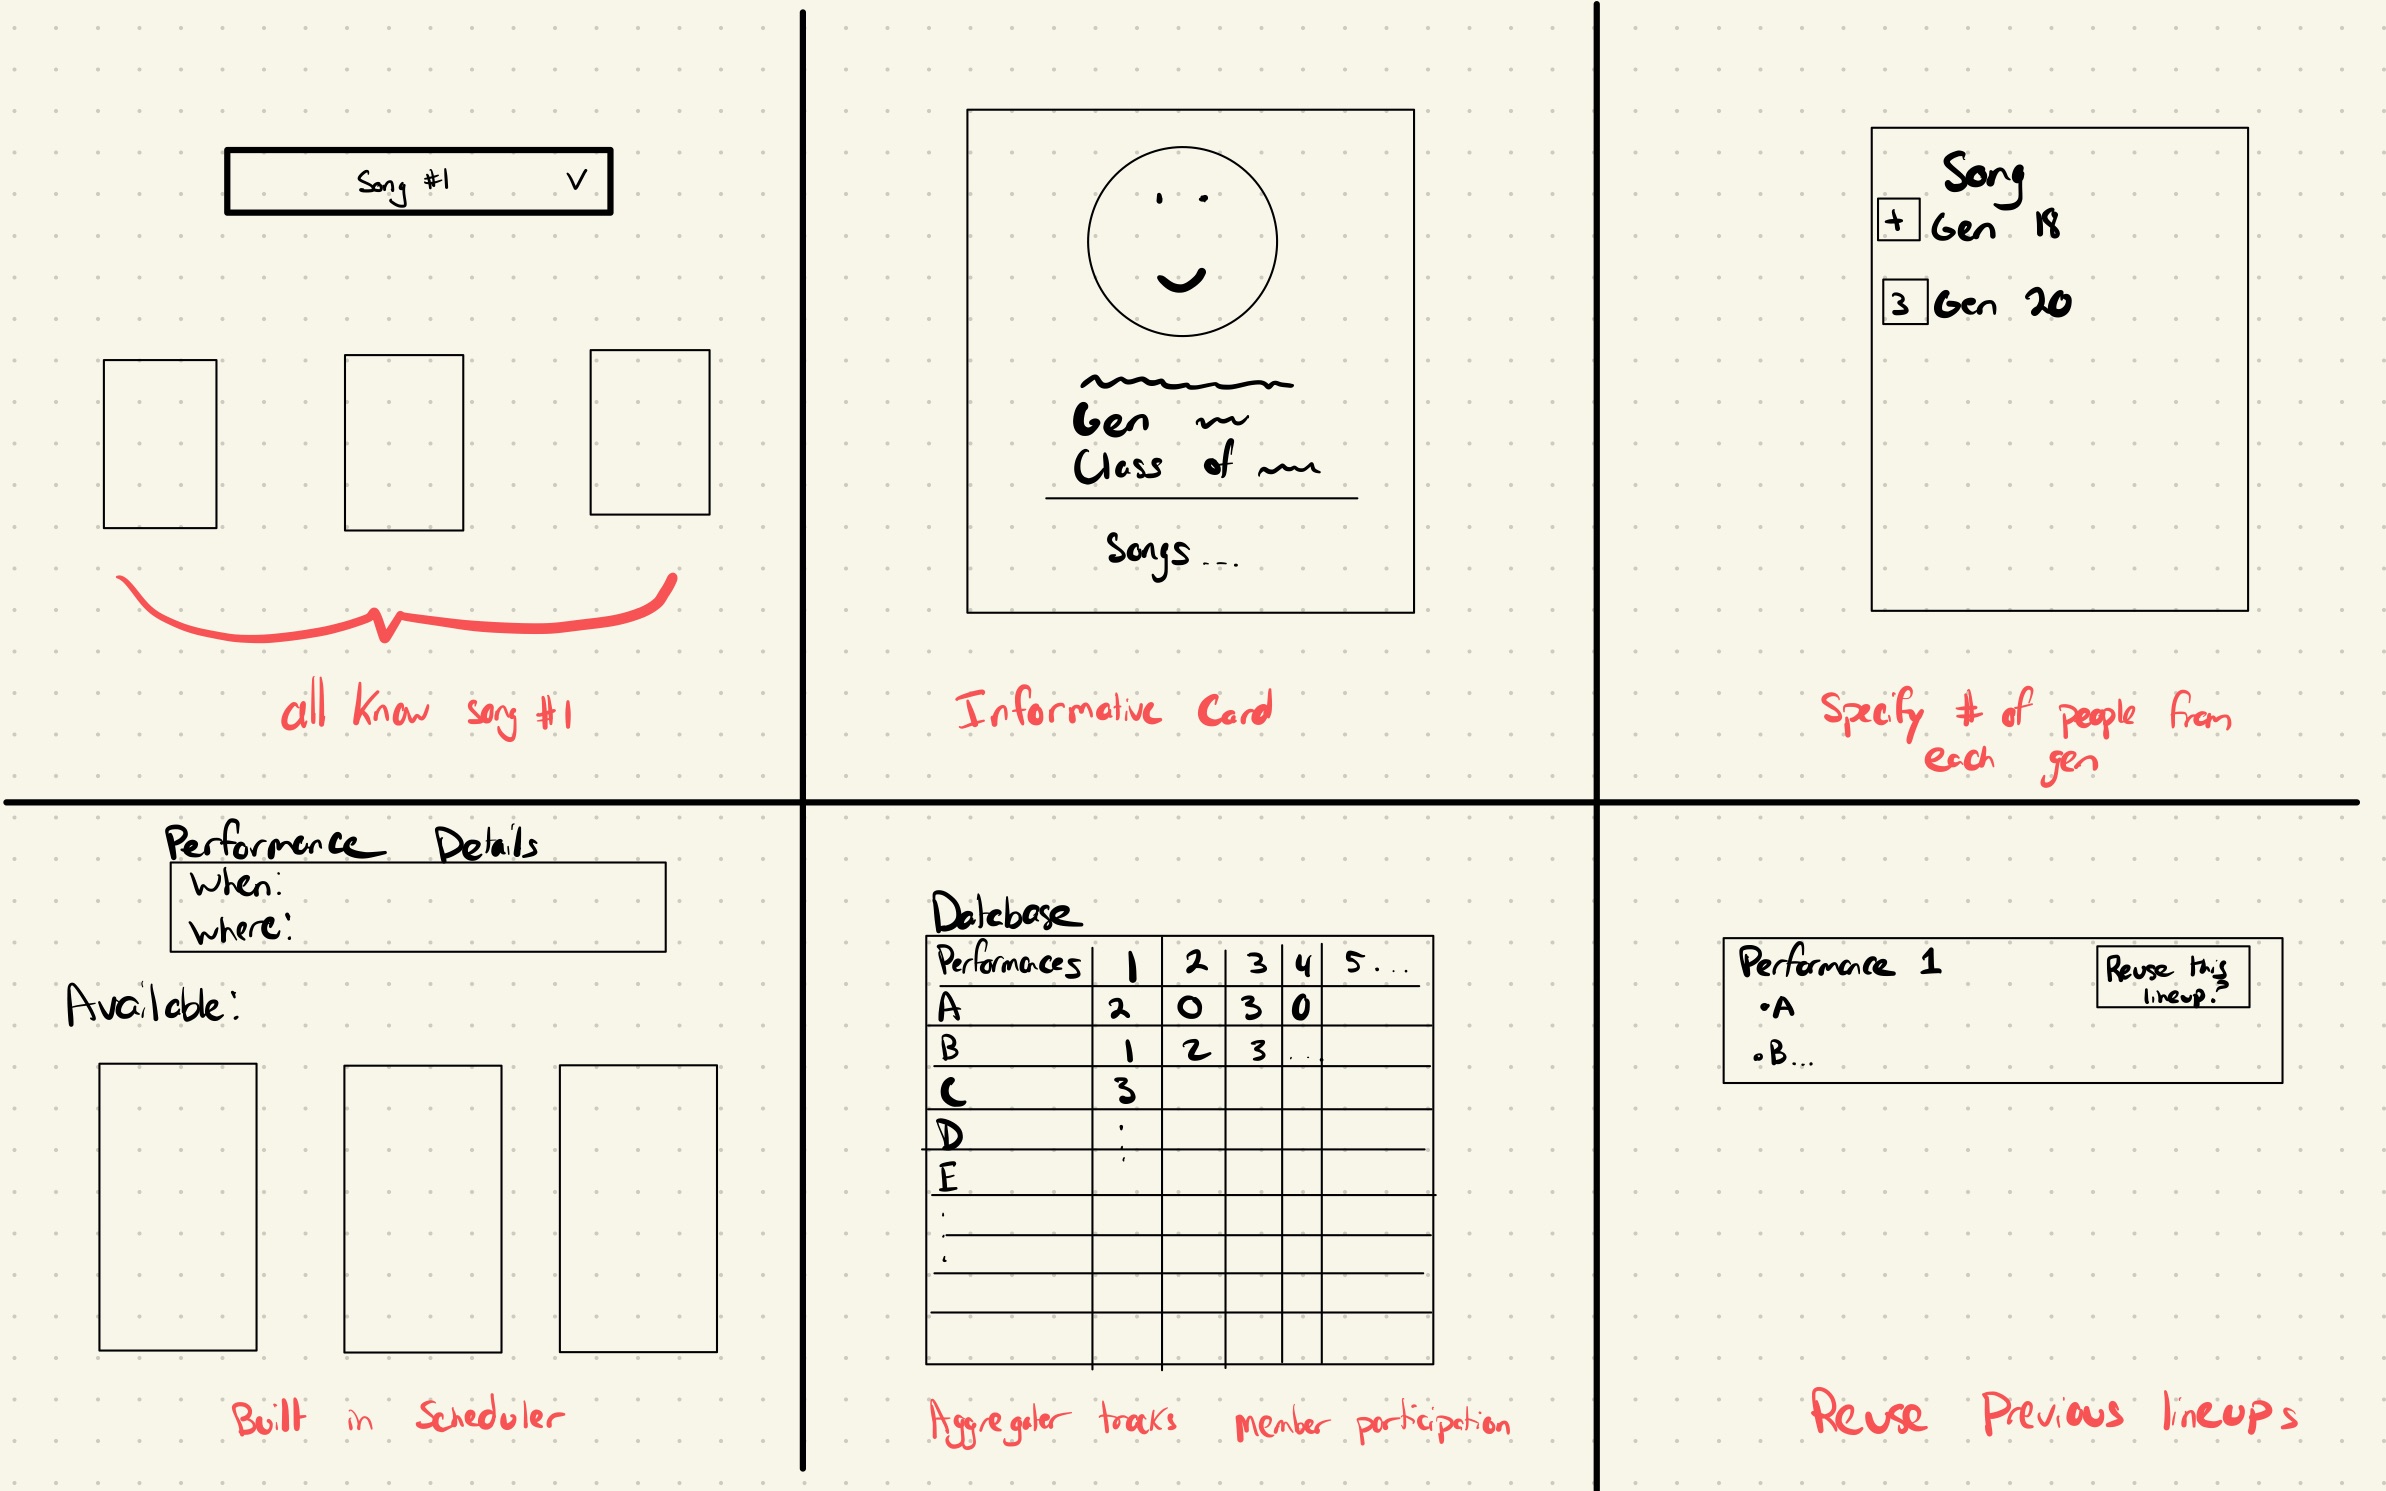 Song #1 V
all know song #1
Gen
Class of
Songs ....
Informative Card
Song
+ Gen 18
3 Gen 20
Specify # of people from
each gen
Performance Details
When:
Where:
Available:
Built in Scheduler
Database
Performances 1 2 3 4 5...
A 2 0 3 0
B 1 2 3 ...
C 3
D :
E
Aggregater tracks member participation
Performance 1
•A
•B...
Reuse this
lineup?
Reuse Previous lineups